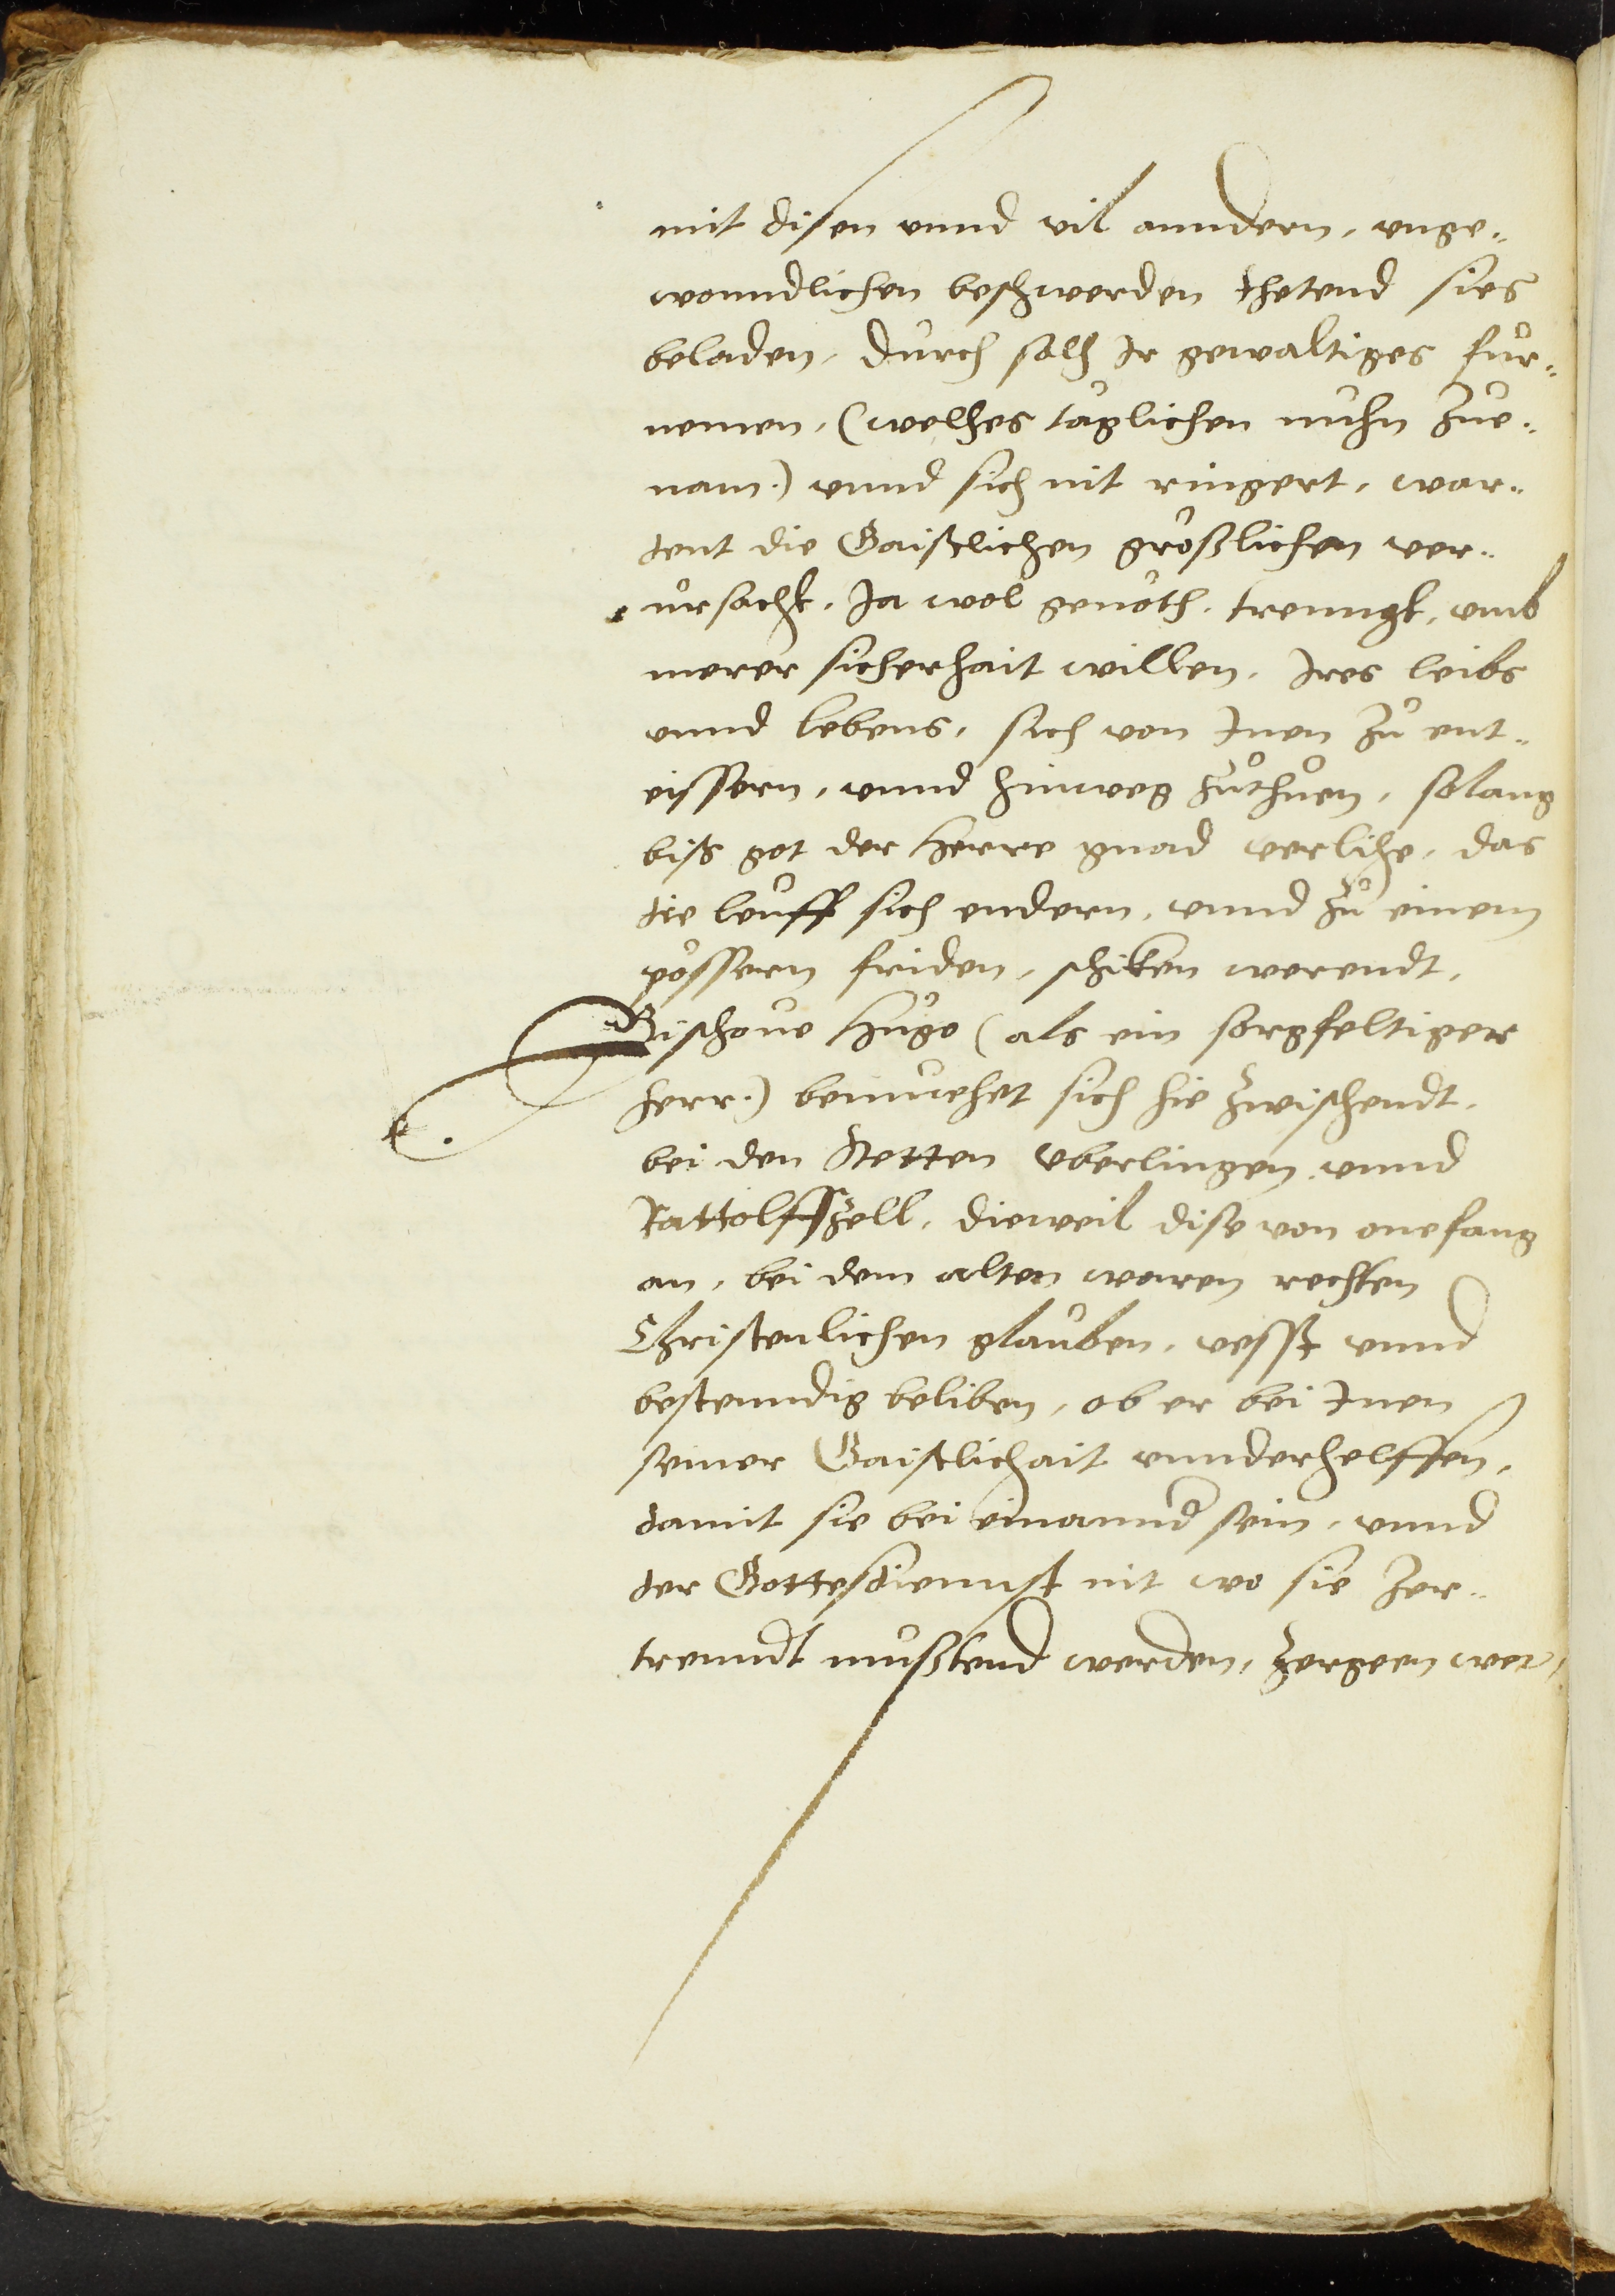 mit disen vnnd vil anndern, vnge„
wonndlichen beschwerden thetend sies
beladen, durch solh Ir gewaltiges fur„
nemen, (welhes täglichen nuhn zue„
nam.) vnnd sich nit ringert, war„
dent die Gaistlichen größlichen ver„
ůrsacht, Ja wol genöth, trenngt, vmb
merer sicherhait willen, Ires leibs
vnnd lebens, sich von Inen zů ent„
eissern, vnnd hinweg zůthůen, solang
biß got der Herre gnad verlihe, das
die leuff sich endern, vnnd zů einem
pössern friden, schiken werendt,
Bischoue Hůgo (als ein sorgfeltiger
herr.) bemuehet sich hie zwischendt,
bei den Stetten vberlingen vnnd
Rattolffzell, dieweil dise von anefang
an, bei dem alten waren rechten
Christenlichen glauben, vesst vnnd
bestenndig beliben, ob er bei Inen
seiner Gaistlichait vnnderhelffen,
damit sie bei einannd sein, vnnd
der Gottesdiennst nit wo sie zer„
trenndt mußtend werden, zergeen wer„